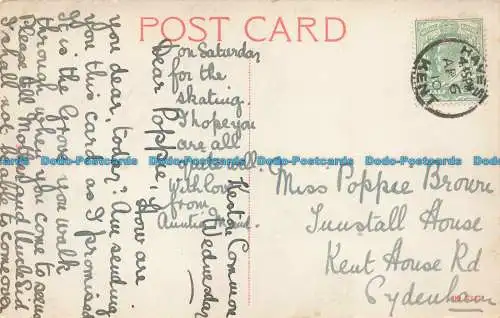 POST CARD
Keston Common
Wednesday
Dear Poppie, How are
you dear, today? Am sending
you this card as I promised
It is the Grove you walk
through when you come to see us
Please tell Mother and Uncle Sid
I shall not be able to come over
on Saturday
for the
skating.
I hope you
are all
quite well.
With love
from
Auntie
HAYES
4.45PM
AP 6
10
KENT
Miss Poppie Brown
Tunstall House
Kent House Rd
Sydenham
Dodo-Postcards Dodo-Postcards Dodo-Postcards Dodo-Postcards Dodo-Postcards Dodo-Postcards